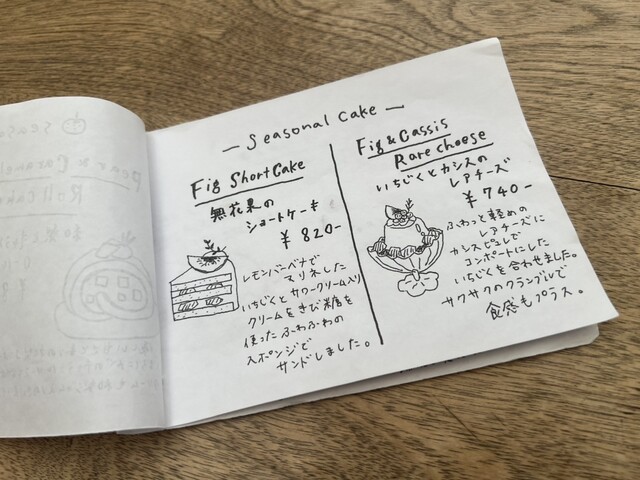 — Seasonal Cake —
Fig Short Cake
無花果の
ショートケーキ
¥ 820-
レモンバーベナで
マリネした
いちじくとサワークリーム入り
クリームをきび糖を
使ったふわふわの
スポンジで
サンドしました。
Fig & Cassis
Rare cheese
いちじくとカシスの
レアチーズ
¥ 740-
ふわっと軽めの
レアチーズに
カシスピュレで
コンポートにした
いちじくを合わせました。
サクサクのクランブルで
食感もプラス。